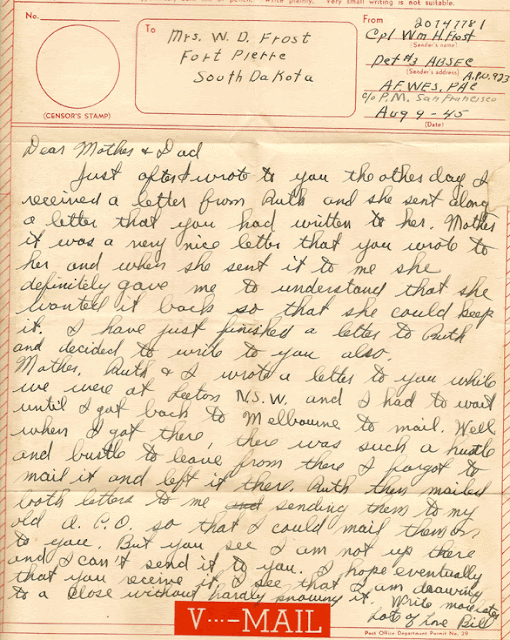 not use ... of pencil. Write plainly. Very small writing is not suitable.
No.
(CENSOR'S STAMP)
To
Mrs. W. D. Frost
Fort Pierre
South Dakota
From
20747781
Cpl Wm H. Frost
(Sender's name)
Det #3 ABSEC
(Sender's address) A.P.O. 923
AF. WES. PAC
c/o P.M. San Francisco
Aug 9 - 45
(Date)
Dear Mother & Dad
Just after I wrote to you the other day I
received a letter from Ruth and she sent along
a letter that you had written to her. Mother
it was a very nice letter that you wrote to
her and when she sent it to me she
definitely gave me to understand that she
wanted it back so that she could keep
it. I have just finished a letter to Ruth
and decided to write to you also.
Mother, Ruth & I wrote a letter to you while
we were at Leeton N.S.W. and I had to wait
until I got back to Melbourne to mail. Well
when I got there there was such a hustle
and bustle to leave from there I forgot to
mail it and left it there. Ruth then mailed
both letters to me and sending them to my
old A.P.O. so that I could mail them on
to you. But you see I am not up there
and I can't send it to you. I hope eventually
that you receive it. I see that I am drawing
to a close without hardly knowing it. Write
Lots of Love Bill
V···-MAIL
Post Office Department Permit No. 29